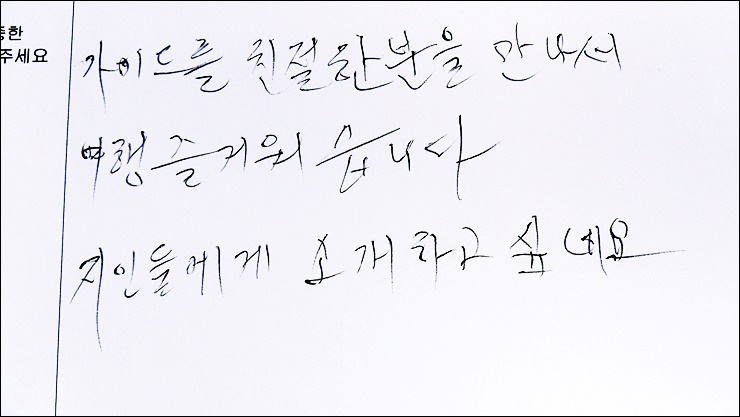 한
주세요
가이드를 친절한분을 만나서
여행 즐거워 습니다
지인들에게 소개하고 싶네요